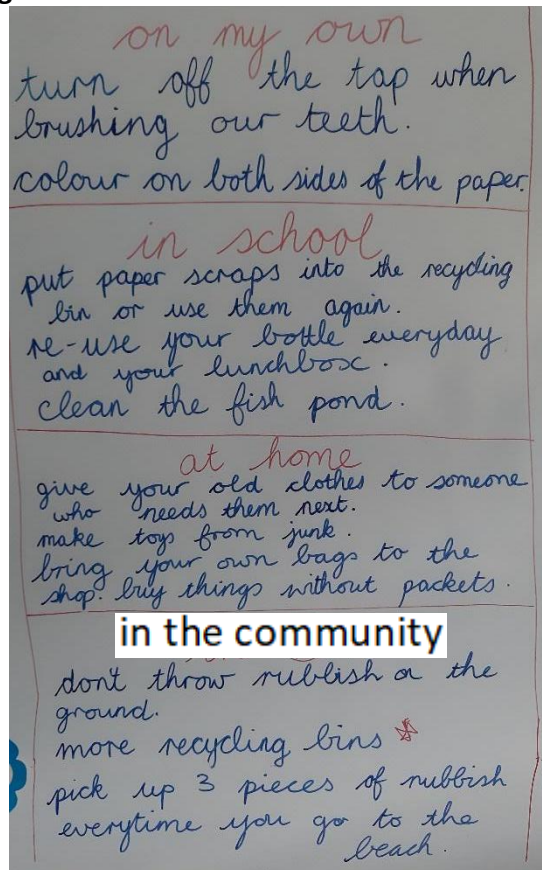 on my own
turn off the tap when
brushing our teeth.
colour on both sides of the paper.
in school
put paper scraps into the recycling
bin or use them again.
re-use your bottle everyday
and your lunchbox.
clean the fish pond.
at home
give your old clothes to someone
who needs them next.
make toys from junk.
bring your own bags to the
shop. buy things without packets.
in the community
don't throw rubbish on the
ground.
more recycling bins
pick up 3 pieces of rubbish
everytime you go to the
beach.